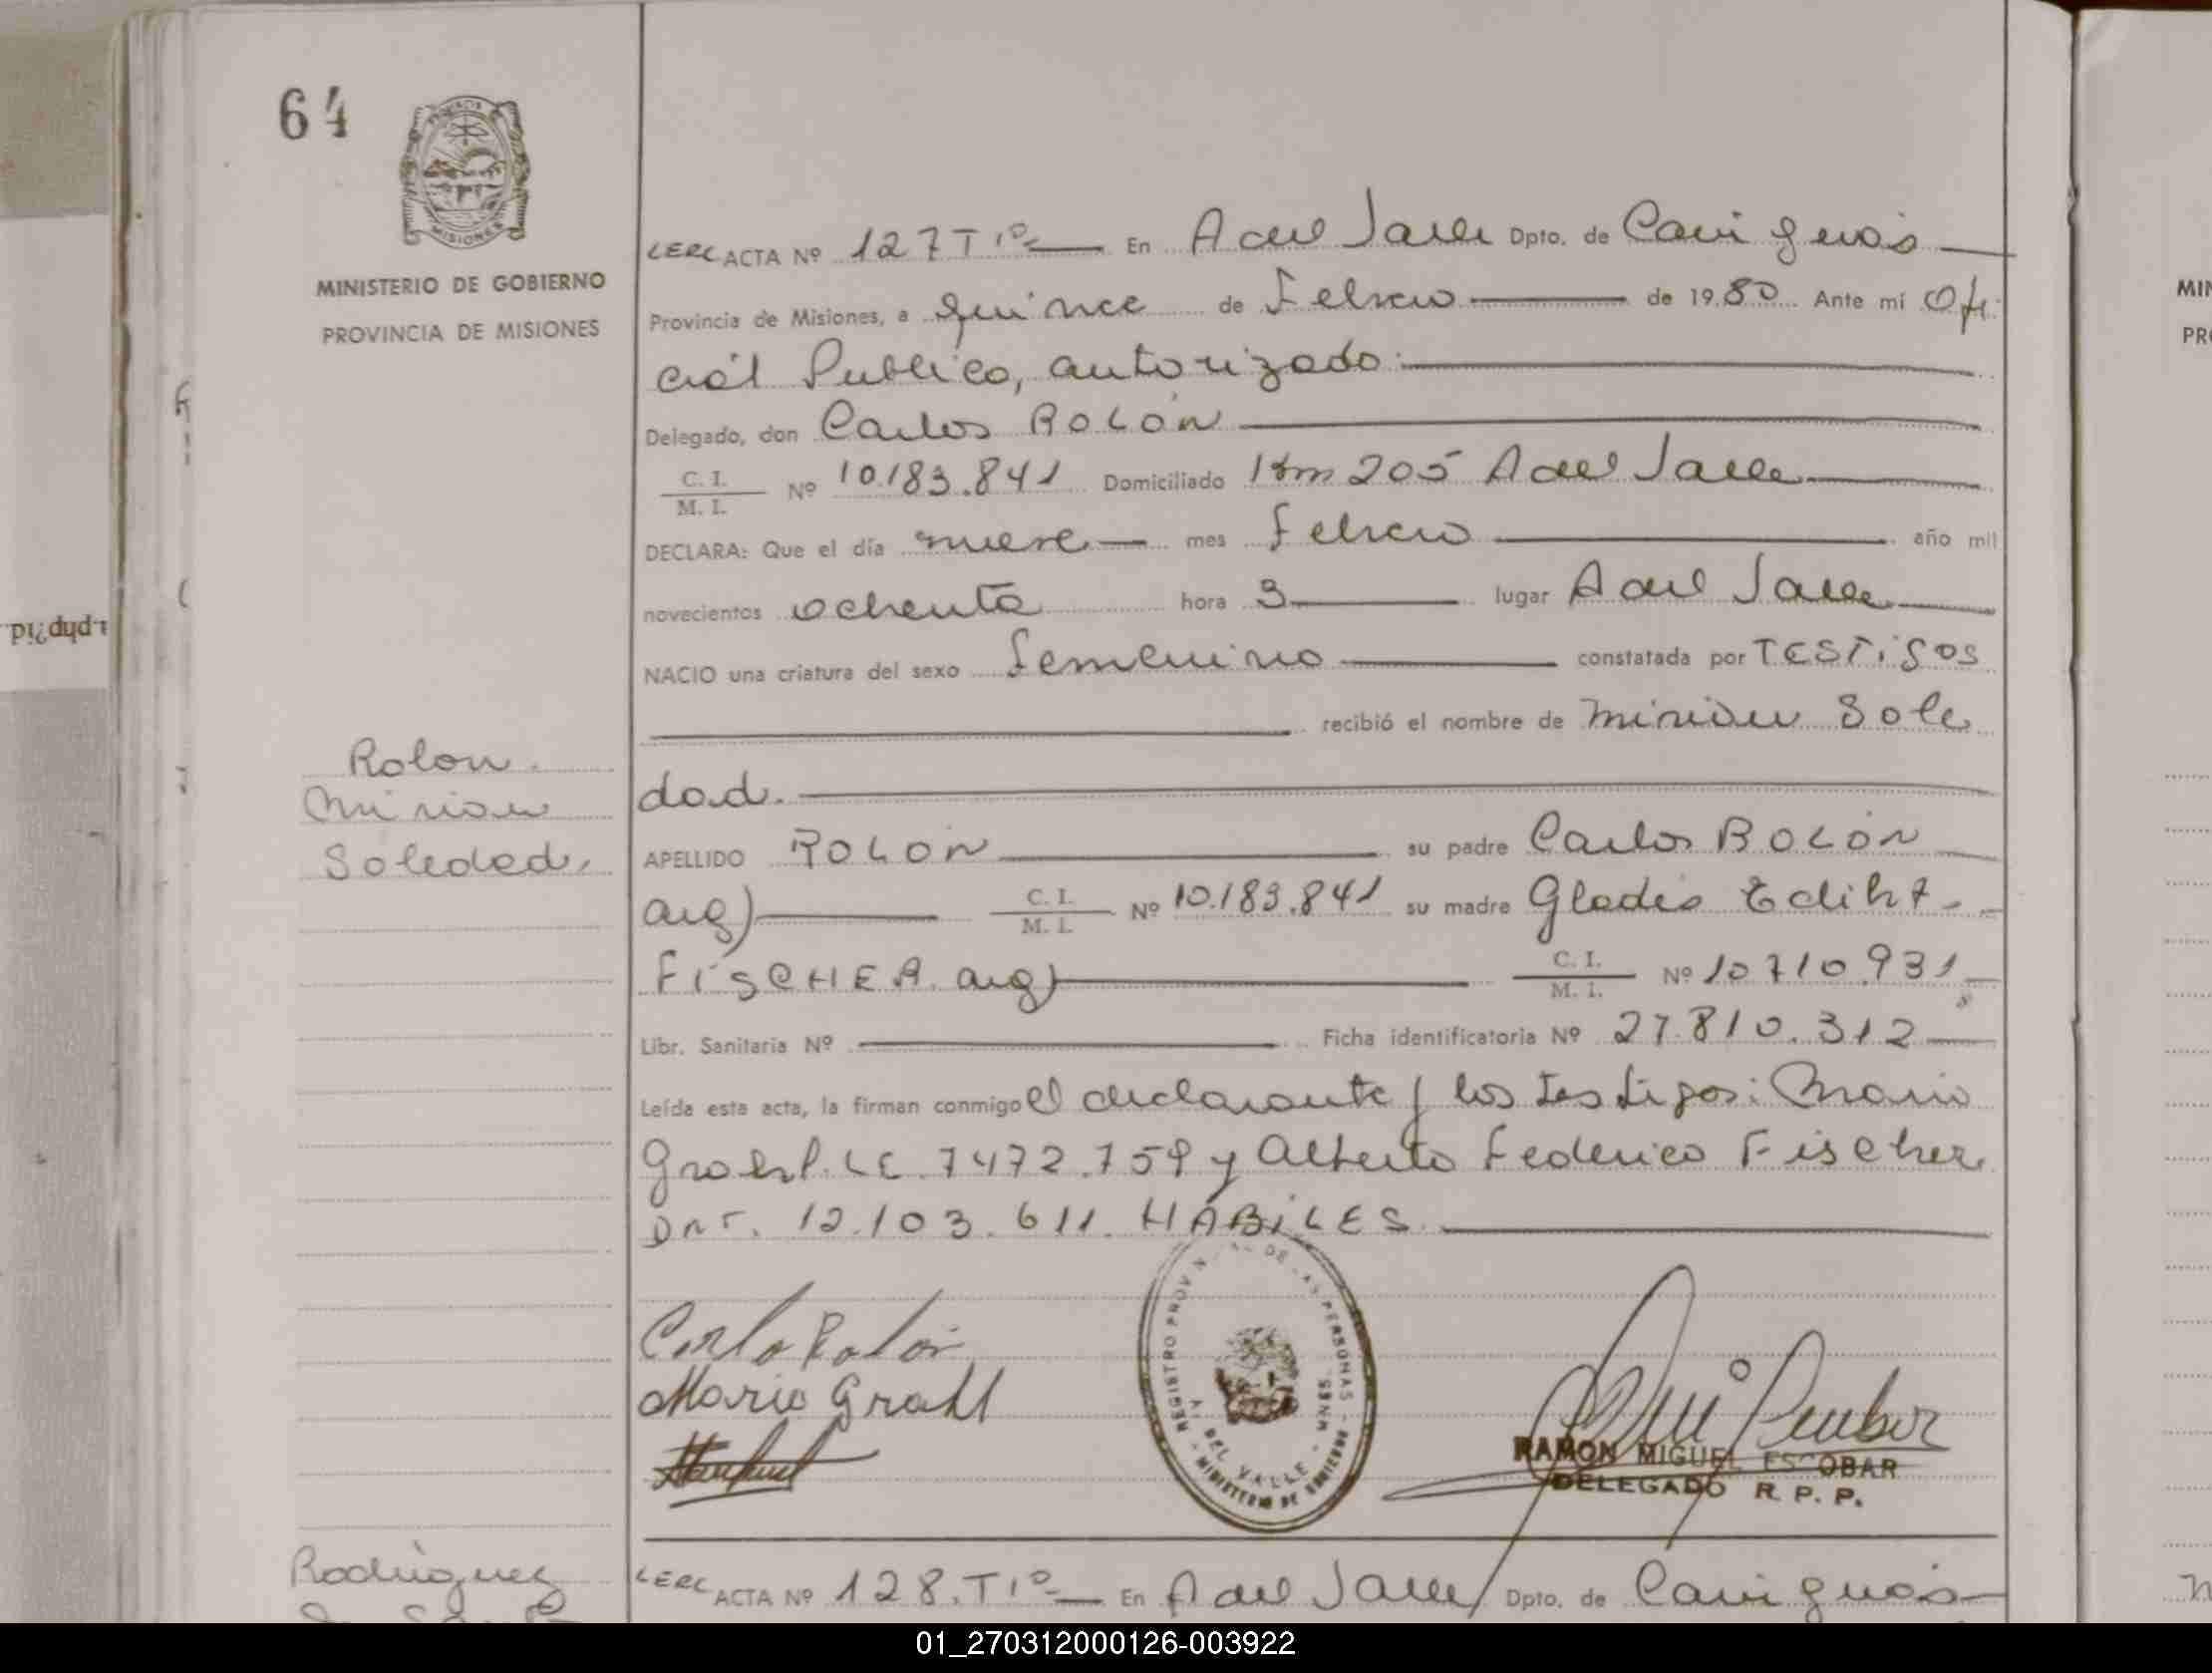 64
PROVINCIA
MISIONES
MINISTERIO DE GOBIERNO
PROVINCIA DE MISIONES
LERC ACTA Nº 127 Tº En A del Valle Dpto. de Cainguás
Provincia de Misiones, a quince de Febrero de 1980 Ante mí Ofi
cial Publico, autorizado
Delegado, don Carlos ROLÓN
C. I.
M. I. Nº 10.183.841 Domiciliado Km 205 A del Valle
DECLARA: Que el día nueve mes Febrero año mil
novecientos ochenta hora 3 lugar A del Valle
NACIO una criatura del sexo Femenino constatada por TESTIGOS
recibió el nombre de Mirian Sole
dad.
Rolon
Mirian
Soledad.
APELLIDO ROLÓN su padre Carlos ROLÓN
arg) C. I.
M. I. Nº 10.183.841 su madre Gladis Ediht
FISCHER arg) C. I.
M. I. Nº 10710.931
Libr. Sanitaria Nº Ficha identificatoria Nº 27.810.312
Leída esta acta, la firman conmigo el declarante y los testigos: Mario
Grahl. LE. 7472.759 y Alberto Federico Fischer
DNI. 12.103.611. HÁBILES.
Carlo Rolón
Mario Grahl
REGISTRO PROVIN DE LAS PERSONAS
A. DEL VALLE - MNES.
MINISTERIO DE GOBIERNO
RAMON MIGUEL ESCOBAR
DELEGADO R. P. P.
Rodriguez
LERC ACTA Nº 128. Tº En A del Valle Dpto. de Cainguás
.php?id
MIN
PRO
01_270312000126-003922